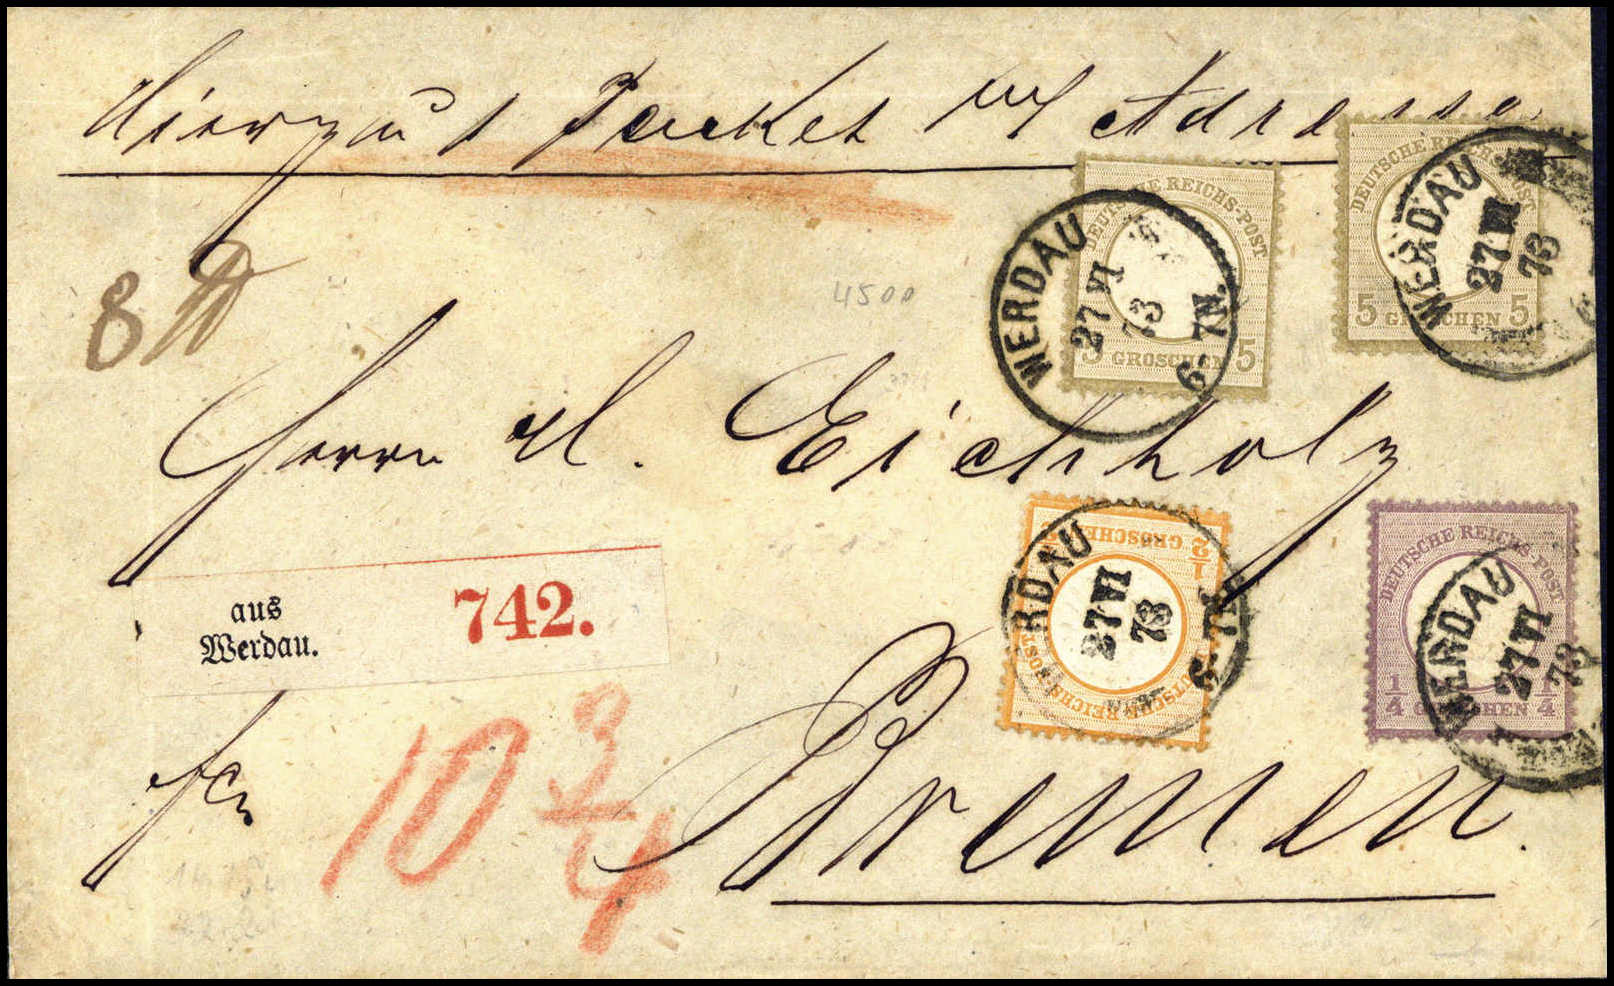 Hierzu 1 Packet m/ Adresse
DEUTSCHE REICHS-POST
5 GROSCHEN 5
WERDAU
27 VI
73
6-7N.
DEUTSCHE REICHS-POST
5 GROSCHEN 5
WERDAU
27 VI
73
8 ℔
4500
Herrn A. Eichholz
aus
Werdau.
742.
DEUTSCHE REICHS-POST
1/2 GROSCHEN
WERDAU
27 VI
73
6-7N.
DEUTSCHE REICHS-POST
1/4 GROSCHEN 1/4
WERDAU
27 VI
73
fco
10 3/4
Bremen.